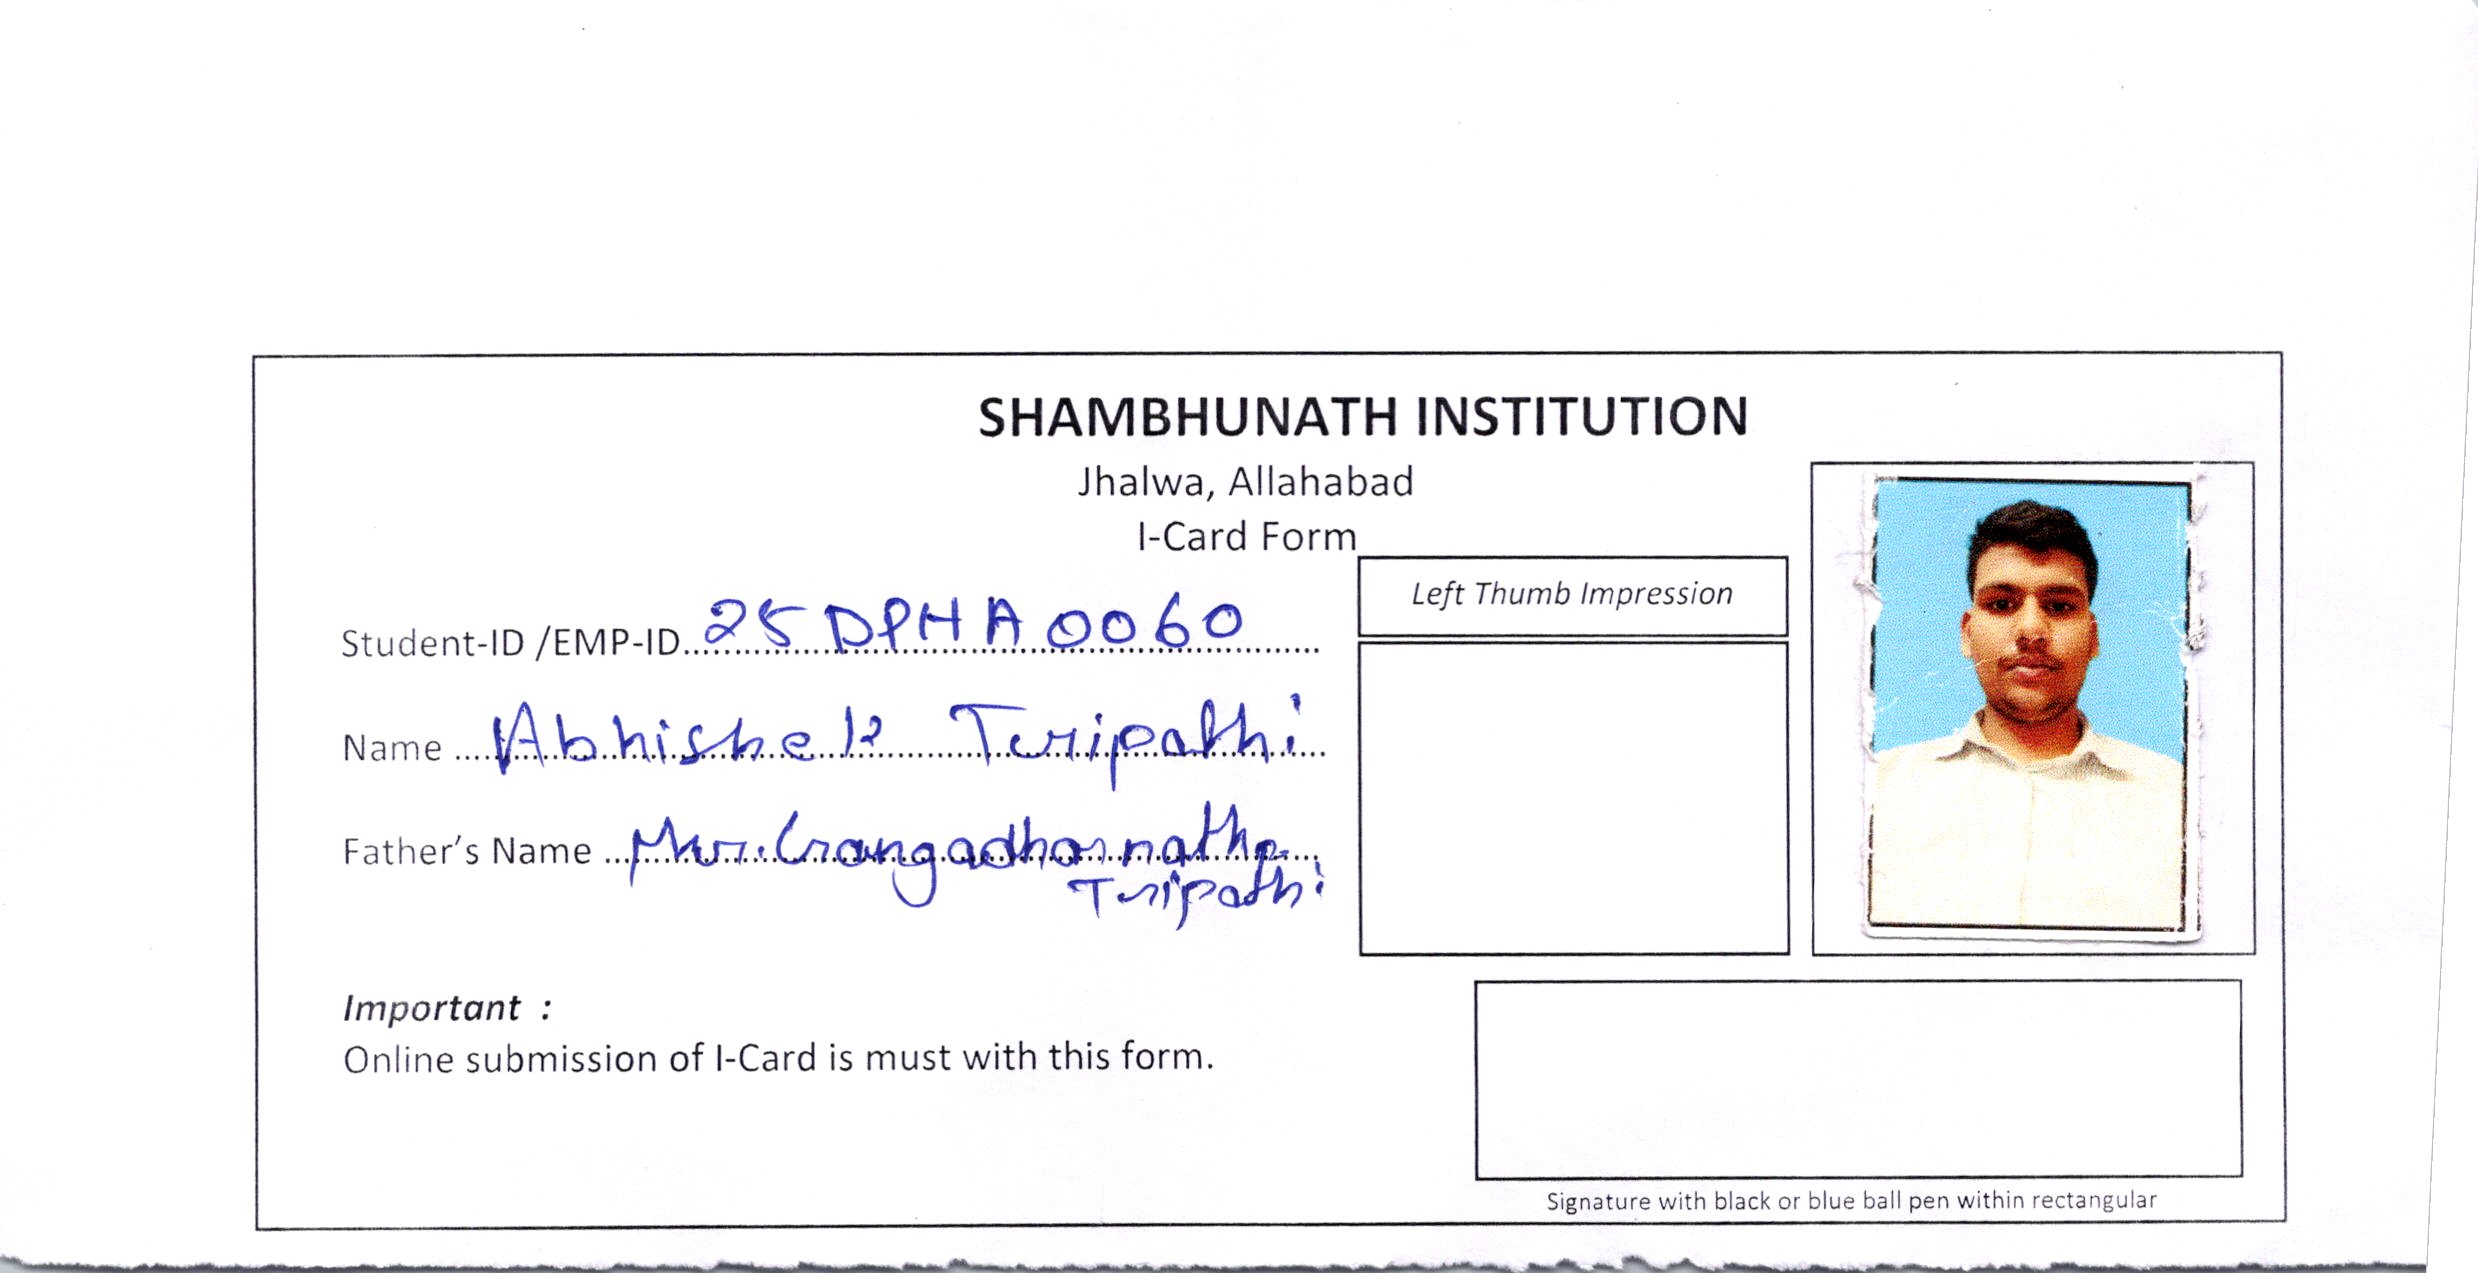 SHAMBHUNATH INSTITUTION
Jhalwa, Allahabad
I-Card Form
Left Thumb Impression
Student-ID /EMP-ID 25DPHA0060
Name Abhishek Tripathi
Father's Name Mr. Gangadhar natha
Tripathi
Important :
Online submission of I-Card is must with this form.
Signature with black or blue ball pen within rectangular